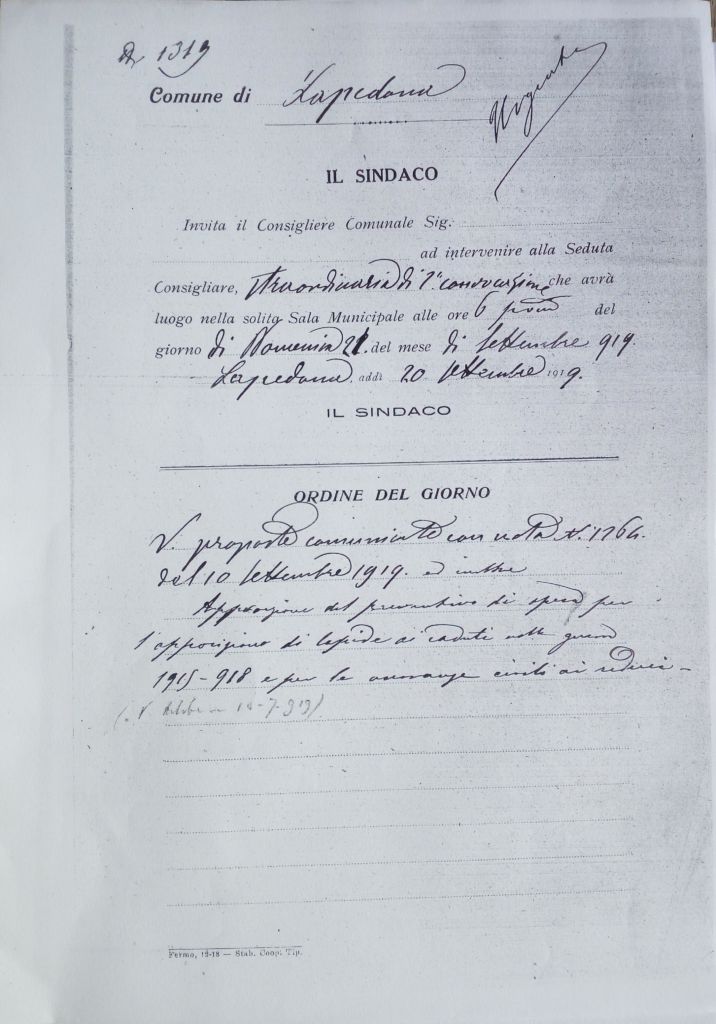 N 1319
Comune di Lapedona
Urgente
IL SINDACO
Invita il Consigliere Comunale Sig.
ad intervenire alla Seduta
Consigliare, straordinaria di 1ª convocazione che avrà
luogo nella solita Sala Municipale alle ore 6 pom del
giorno di Domenica 21. del mese di Settembre 919.
Lapedona, addì 20 Settembre 1919.
IL SINDACO
ORDINE DEL GIORNO
V. proposte comunicate con nota N. 1264.
del 10 Settembre 1919. ed inoltre
Approvazione del preventivo di spesa per
l'apposizione di lapide ai caduti nella guerra
1915-918 e per le onoranze civili ai reduci -
(V. 7-919)
Fermo, 12-18 — Stab. Coop. Tip.